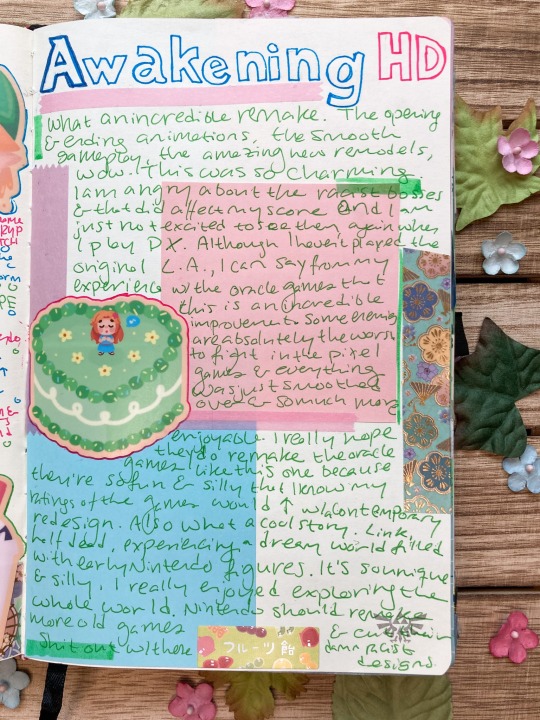 Awakening HD
What an incredible remake. The opening
& ending animations, the smooth
gameplay, the amazing new remodels,
wow. This was so charming
I am angry about the racist bosses
& that did affect my score and I am
just not excited to see them again when
I play DX. Although I haven't played the
original L.A., I can say from my
experience w/ the oracle games that
this is an incredible
improvement. Some enemies
are absolutely the worst
to fight in the pixel
games & everything
was just smoothed
over & so much more
enjoyable I really hope
they do remake the oracle
games like this one because
they're so fun & silly that I know my
ratings of the games would ↑ w/ a contemporary
redesign. Also what a cool story. Link,
half dead, experiencing a dream world filled
with early Nintendo figures. It's so unique
& silly, I really enjoyed exploring the
whole world. Nintendo should remake
more old games & cut
shit out w/ these damn racist
designs.
フルーツ飴